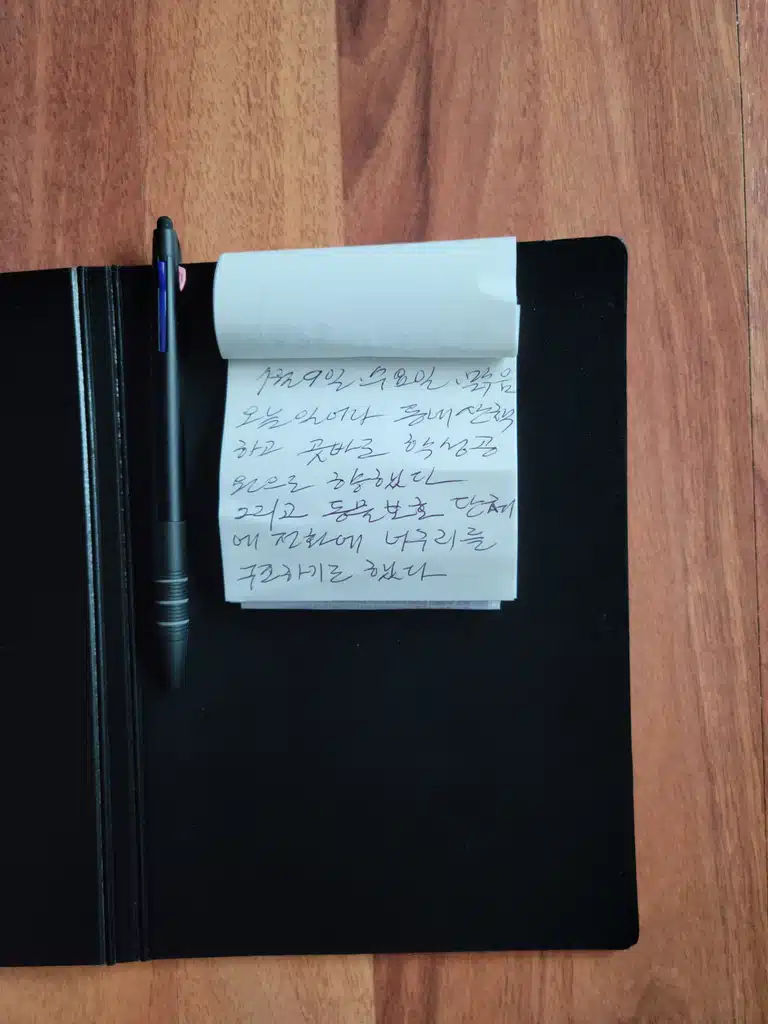 1월 9일. 수요일. 맑음
오늘 일어나 동네 산책
하고 곳바로 학성공
원으로 향했다
그리고 동물보호 단체
에 전화에 너구리를
구조하기로 했다